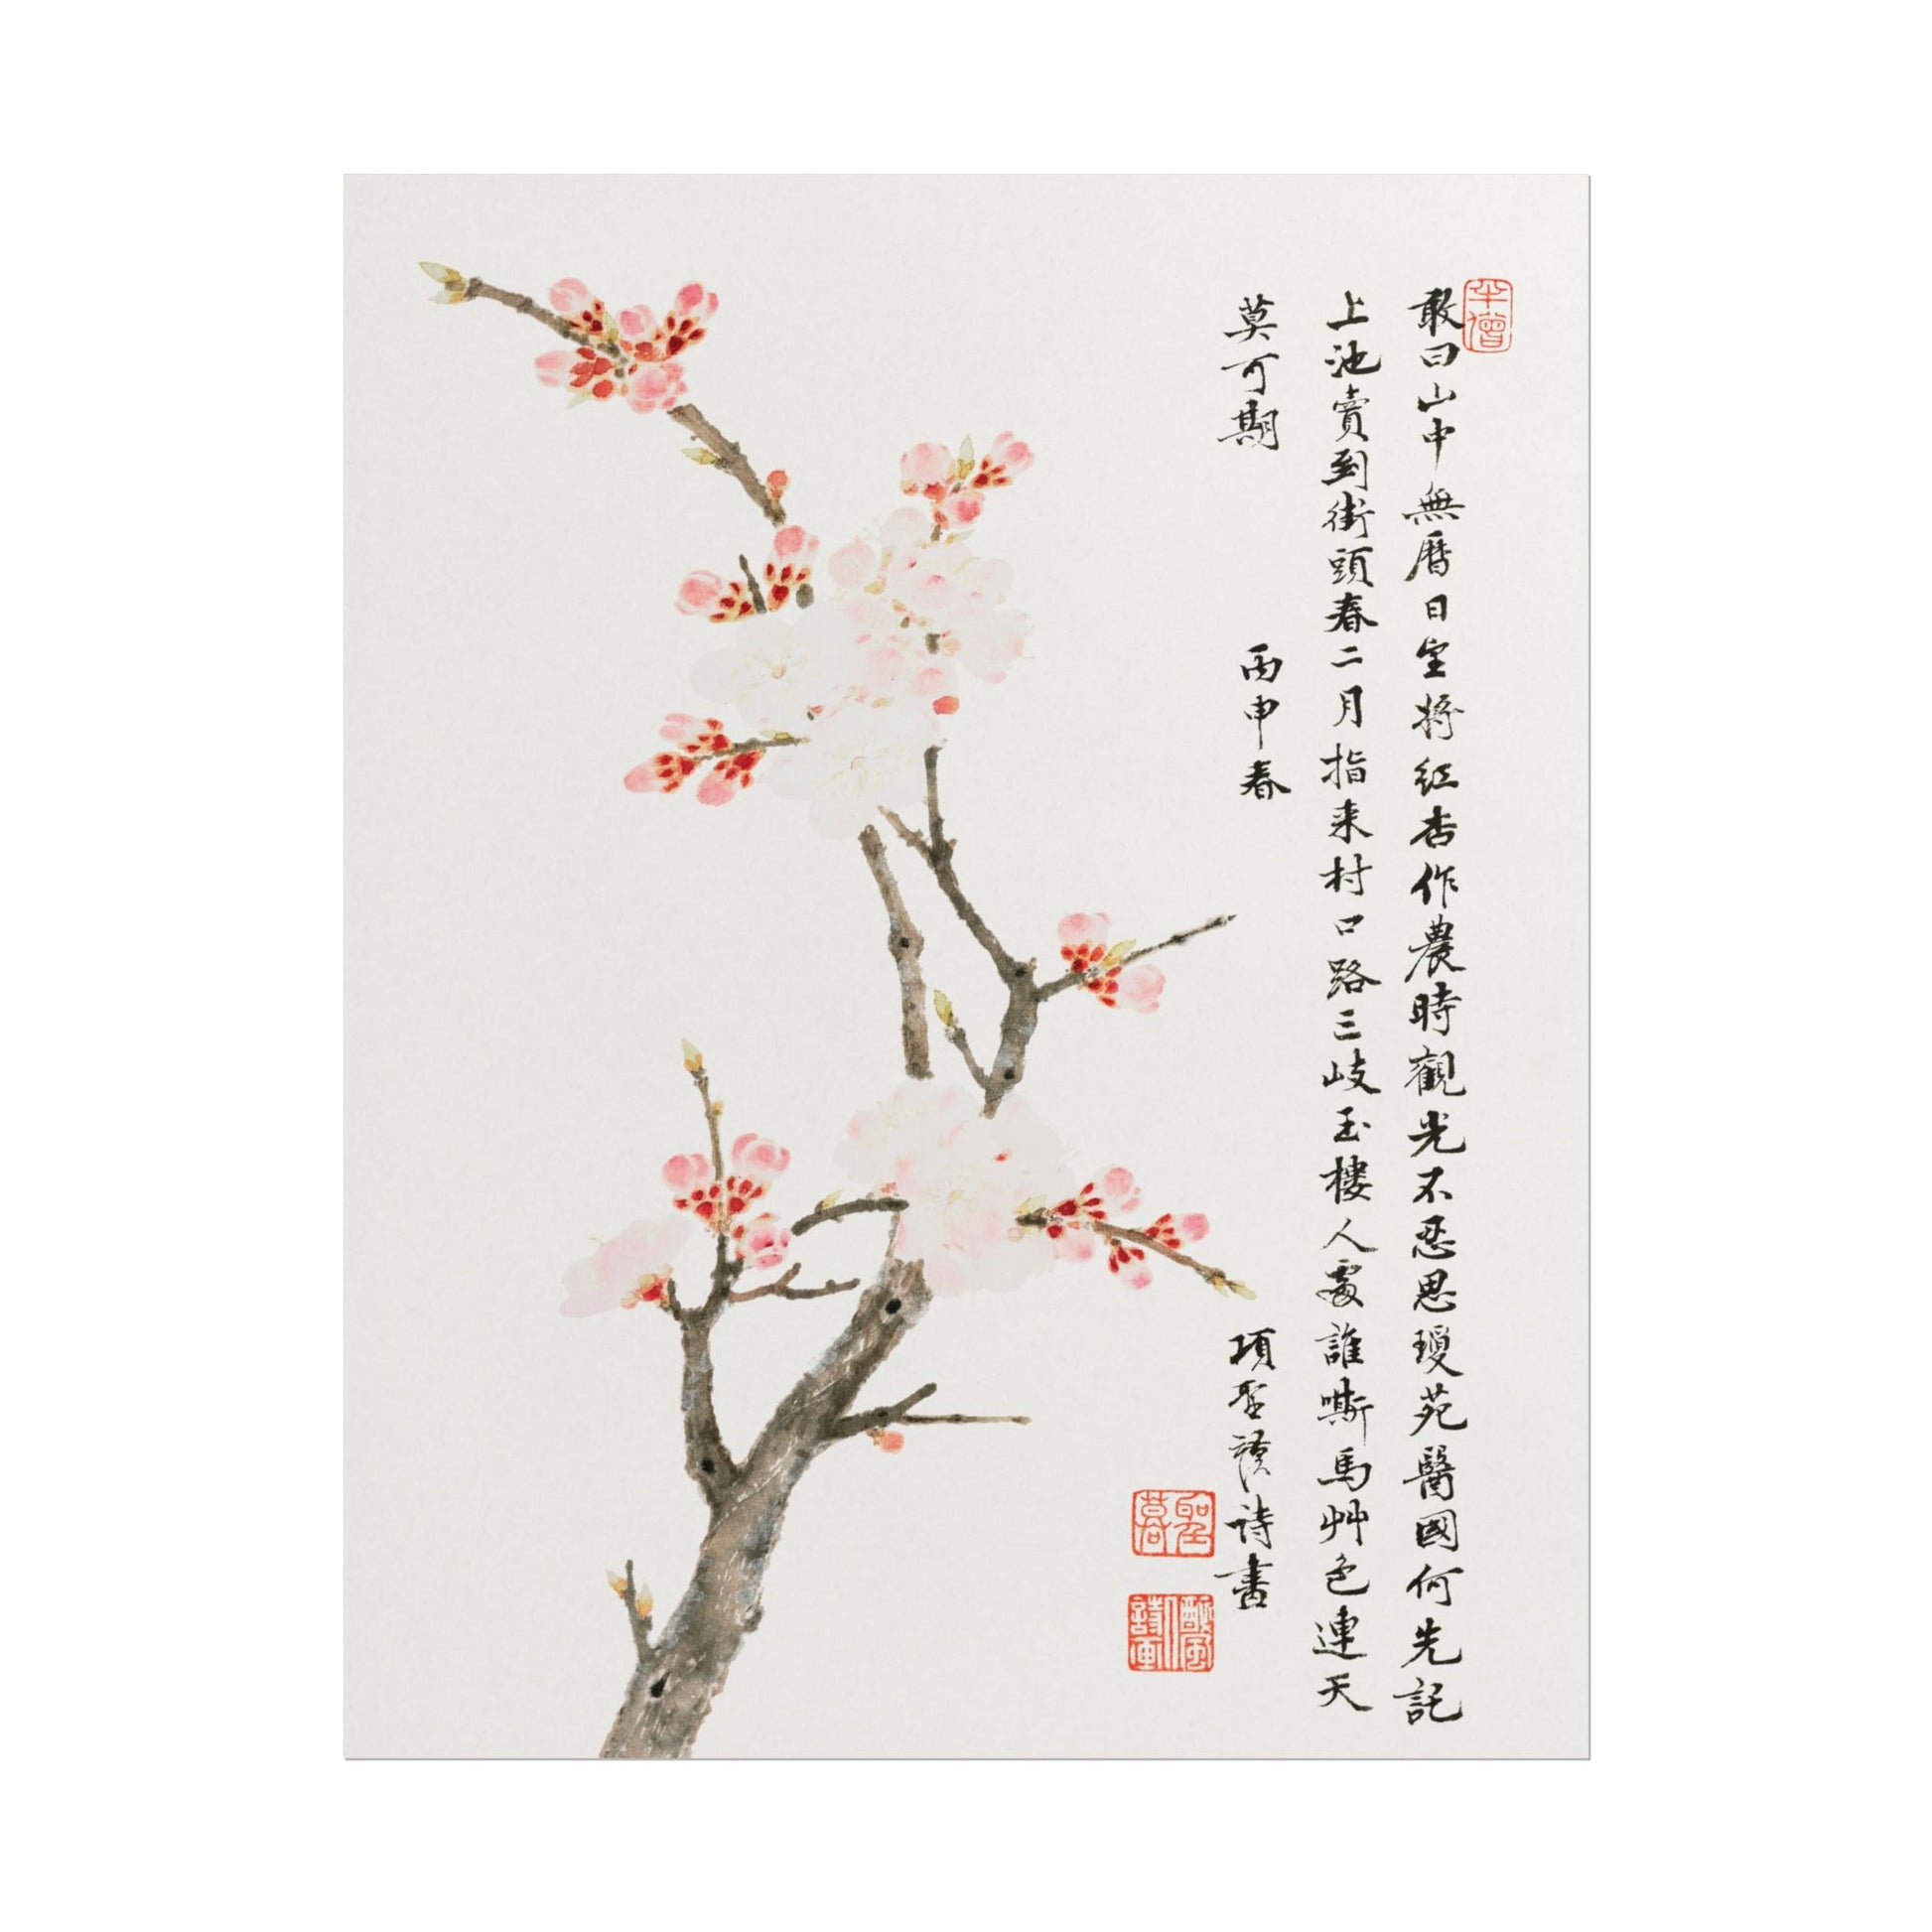 敢曰山中無曆日宜將紅杏作農時觀光不忍思瓊苑醫國何先託
上池賣到街頭春二月指來村口路三岐玉樓人處誰嘶馬艸色連天
莫可期　丙申春　項聖謨詩畫